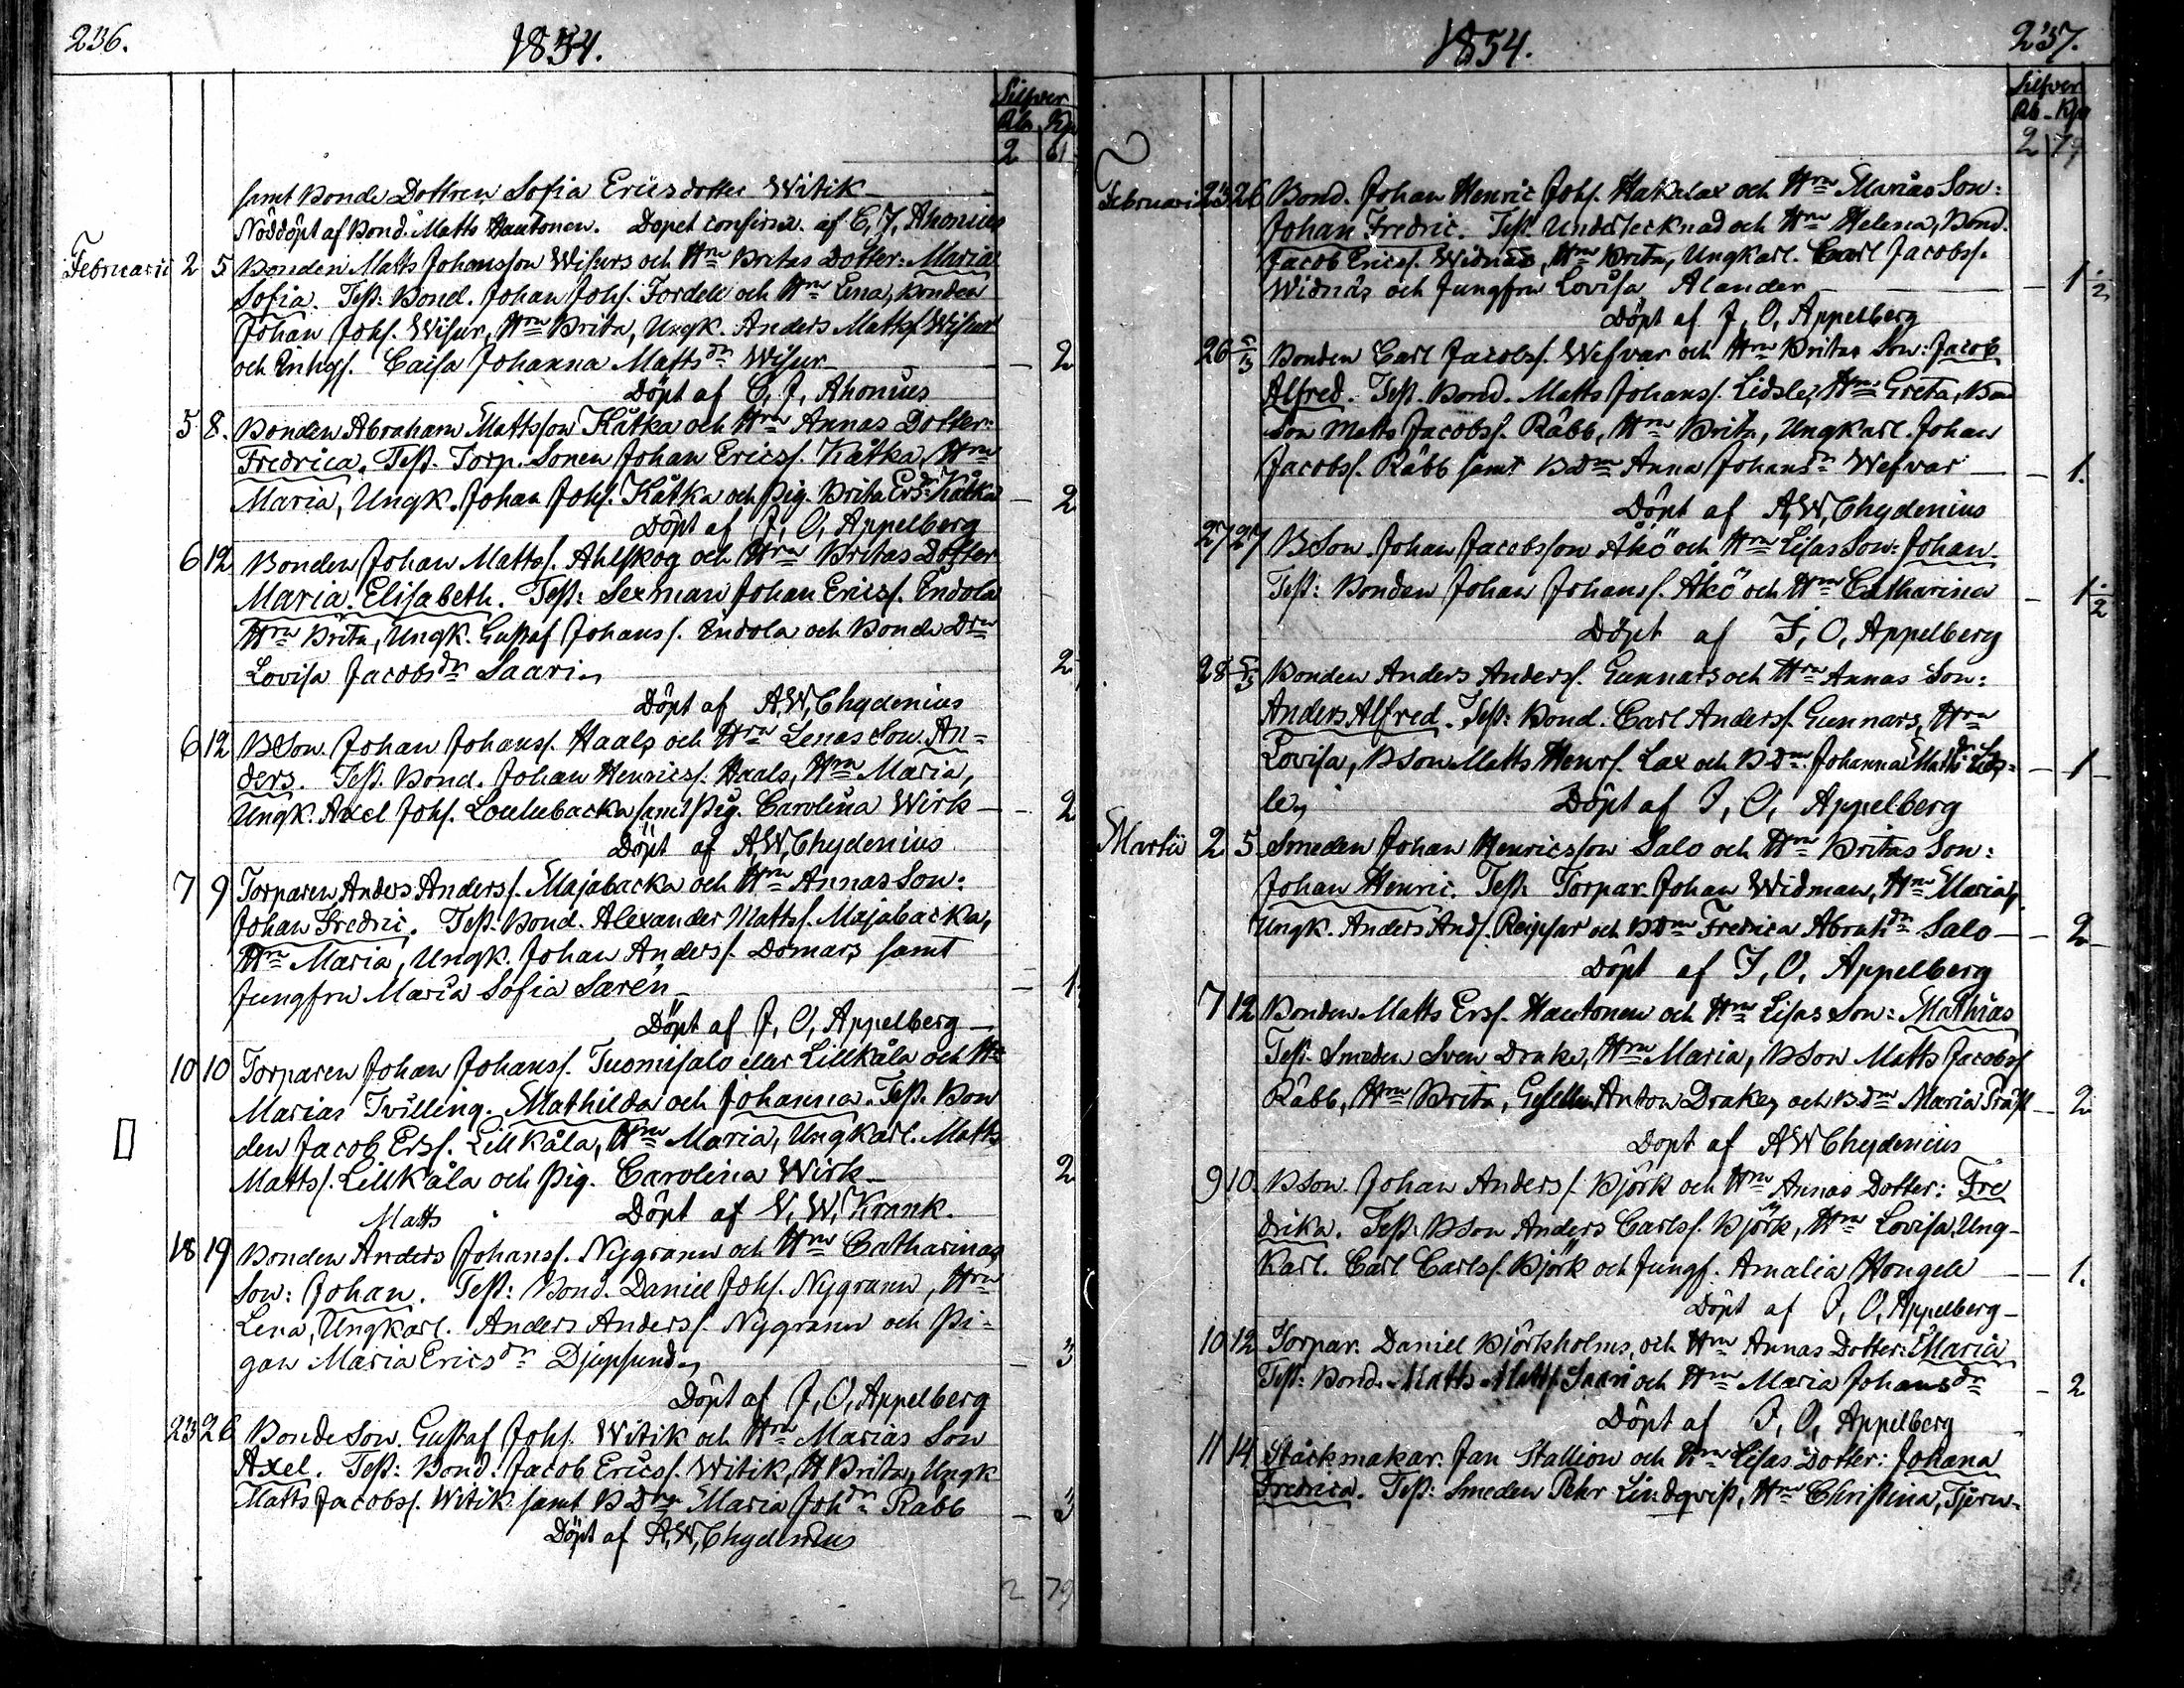 236.
1854.
Silfver
Rb. Kp.
2 61
samt Bonde Dottren Sofia Ericsdotter Witik
Nöddöpt af Bond. Matts Hautonen. Dopet confirm. af C, J, Ahonius
Februarii 2 5 Bonden Matts Johansson Wisurs och Hru Britas Dotter: Maria
Sofia. Test: Bond. Johan Johs. Fordell och Hru Lena, Bonden
Johan Johs. Wisur, Hru Brita, Ungk. Anders Mattss. Wisur
och Caisa Johanna Mattsdr Wisur — 2
Döpt af C, J, Ahonius
5 8. Bonden Abraham Mattsson Kåtka och Hru Annas Dotter:
Fredrica. Test. Torp. Sonen Johan Ericss. Kåtka, Hru
Maria, Ungk. Johan Johs. Kåtka och Pig. Brita Ersdr Kåtka — 2
Döpt af J, O, Appelberg
6 12 Bonden Johan Mattss. Ahlskog och Hru Britas Dotter
Maria Elisabeth. Test: Sexman Johan Ericss. Indola
Hru Brita, Ungk. Gustaf Johanss. Indola och Bonde Dru
Lovisa Jacobsdr Saari, 2
Döpt af A, W, Chydenius
6 12 BSon. Johan Johanss. Haals och Hru Lenas Son. An=
ders. Test. Bond. Johan Henricss. Haals, Hru Maria,
Ungk. Axel Johs. samt Pig. Carolina Wirk — 2
Döpt af A, W, Chydenius
7 9 Torparen Anders Anderss. Majabacka och Hru Annas Son:
Johan Fredric. Test. Bond. Alexander Mattss. Majabacka,
Hru Maria, Ungk. Johan Anderss. Domars samt
Jungfru Maria Sofia Saren — 1
Döpt af J, O, Appelberg —
10 10 Torparen Johan Johanss. Tuomisalo eller Lillkåla och Hru
Marias Tvilling. Mathilda och Johanna. Test. Bon
den Jacob Erss. Lillkåla, Hru Maria, Ungkarl. Matts
Mattss. Lillkåla och Pig. Carolina Wirk — 2
Döpt af N, W, Krank.
Matts
18 19 Bonden Anders Johanss. Nygrann och Hru Catharinas
Son: Johan. Test: Bond. Daniel Johs. Nygrann, Hru
Lena, Ungkarl. Anders Anderss. Nygrann och Pi=
gan Maria Ericsdr Djupsund, — 3
Döpt af J, O, Appelberg
23 26 BondeSon. Gustaf Johs. Witik och Hru Marias Son
Axel. Test: Bond. Jacob Ericss. Witik, H Brita, Ungk
Matts Jacobss. Witik samt BDru Maria Johdr Räbb — 3
Döpt af A, W, Chydenius
2 79
1854.
237.
Silfver
Rb. Kp
2 79
Februarii 23 26 Bond. Johan Henric Johs. Hakalax och Hru Marias Son:
Johan Fredric. Test. Undertecknad och Hru Helena, Bond.
Jacob Ericss. Widnäs, Hru Brita, Ungkarl. Carl Jacobss.
Widnäs och Jungfru Lovisa Alander — 1 1/2
Döpt af J, O, Appelberg
26 5/3 Bonden Carl Jacobss. Wefvar och Hru Britas Son: Jacob
Alfred. Test. Bond. Matts Johanss. Lidsle, Hru Greta, Bond
Son Matts Jacobss. Räbb, Hru Brita, Ungkarl. Johan
Jacobss. Räbb samt BDru Anna Johansdr Wefvar — 1.
Döpt af A, W, Chydenius
27 27 BSon. Johan Jacobsson Åkö och Hru Lisas Son: Johan.
Test: Bonden Johan Johanss. Åkö och Hru Catharina — 1 1/2
Döpt af J, O, Appelberg
28 5/3 Bonden Anders Anderss. Gunnars och Hru Annas Son:
Anders Alfred. Test: Bond. Carl Anderss. Gunnars, Hru
Lovisa, BSon Matts Henrs. Lax och BDru. Johanna Mattsdr Lids= — 1 —
le, Döpt af J, O, Appelberg
Martii 2 5 Smeden Johan Henricsson Salo och Hru Britas Son:
Johan Henric. Test: Torpar. Johan Widman, Hru Maria,
Ungk. Anders Ands. och BDru Fredrica Abrahdr Salo — 2
Döpt af J, O, Appelberg
7 12 Bonden Matts Erss. Hautonen och Hru Lisas Son: Mathias
Test. Smeden Sven Drake, Hru Maria, BSon Matts Jacobss
Räbb, Hru Brita, Gesellen Anton Drake, och BDru Maria — 2
Döpt af A W Chydenius
9 10. BSon. Johan Anderss. Björk och Hru Annas Dotter: Fre
drika. Test: BSon Anders Carlss. Björk, Hru Lovisa, Ung-
Karl. Carl Carlss. Björk och Jungf. Amalia Hongell — 1.
Döpt af J, O, Appelberg —
10 12 Torpar. Daniel Björkholms, och Hru Annas Dotter: Maria
Test: Bond. Matts Mattss Saari och Hru Maria Johansdr — 2
Döpt af J, O, Appelberg
11 14 Stäckmakar. Jan Stallion och Hru Lisas Dotter: Johana
Fredrica. Test: Smeden Pehr Lindqvist, Hru Christina, Tjern-